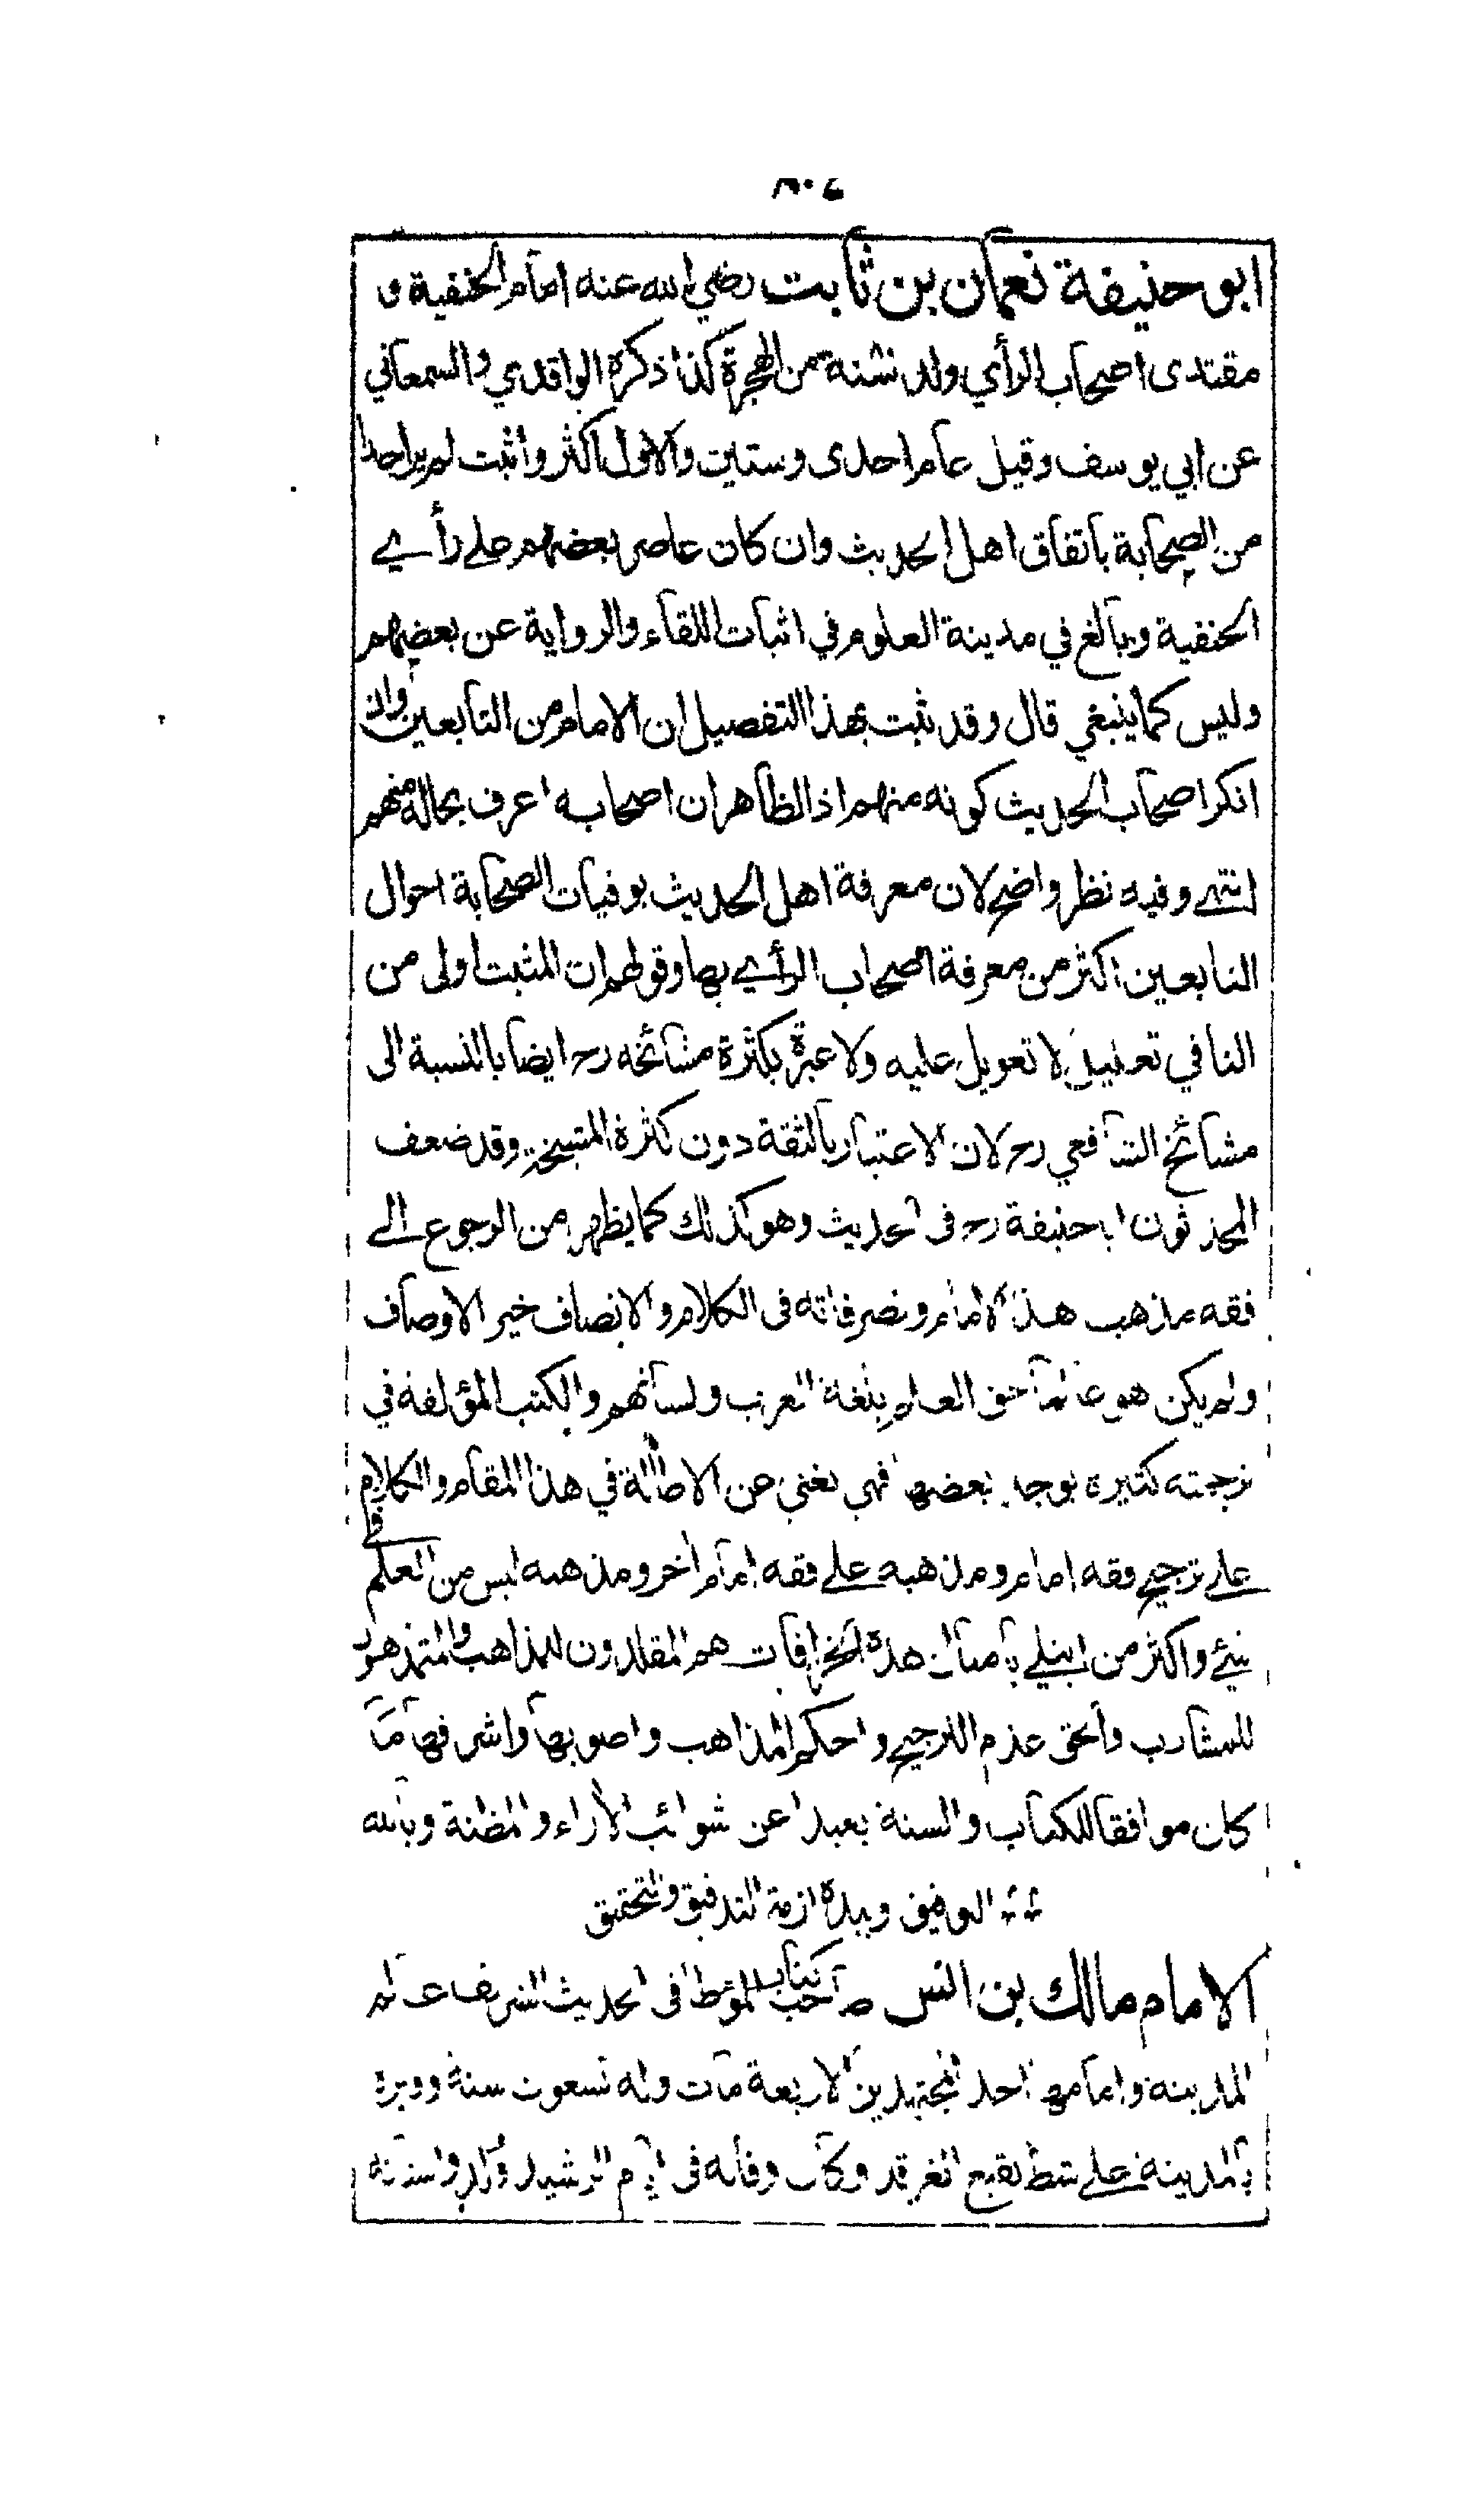 ابو حنيفة نعمان بن ثابت رضي الله عنه امام الحنفية و
مقتدى اصحاب الرأي ولد من الهجرة كذا ذكره الواقدي والسمعاني
عن ابي يوسف وقيل عام احدى وستين والاول اكثر واثبت لم ير احدا
من الصحابة باتفاق اهل الحديث وان كان عاصر بعضهم على رأي
الحنفية وبالغ في مدينة العلوم في اثبات اللقاء والرواية عن بعضهم
وليس كما ينبغي قال وقد ثبت بهذا التفصيل ان الامام من التابعين وان
انكر اصحاب الحديث كونه منهم اذ الظاهر ان اصحابه اعرف بحاله منهم
انتهى وفيه نظر واضح لان معرفة اهل الحديث بوفيات الصحابة احوال
التابعين اكثر من معرفة اصحاب الرأي بها وقولهم ان المثبت اولى من
النافي تعليل لا تعويل عليه ولا عبرة بكثرة مشائخه رح ايضا بالنسبة الى
مشائخ الشافعي رح لان الاعتبار بالثقة دون كثرة المشيخة وقد ضعف
المحدثون ابا حنيفة رح في الحديث وهو كذلك كما يظهر من الرجوع الى
فقه مذهب هذا الامام وتصرفاته في الكلام والانصاف خير الاوصاف
ولم يكن هو عالما حق العلم بلغة العرب ولسانهم والكتب المؤلفة في
ترجمته كثيرة يوجد بعضها فهي تغني عن الاطالة في هذا المقام والكلام
على ترجيح فقه امام ومذهبه على فقه امام اخر ومذهبه ليس من العلم في
شيء واكثر من ابتلي بامثال هذه الخرافات هم المقلدون للمذاهب والمتمذهبون
للمشارب والحق عدم الترجيح واحكم المذاهب واصوبها واشرفها ما
كان موافقا للكتاب والسنة بعيدا عن شوائب الأراء والمظنة وبالله
التوفيق وبيده ازمة التدقيق والتحقيق
الامام مالك بن انس صاحب كتاب المؤطا في الحديث الشريف عالم
المدينة وامامها احد المجتهدين الاربعة مات وله تسعون سنة وقبره
بالمدينة على شط بقيع الغرقد وكان وفاته في ايام الرشيد